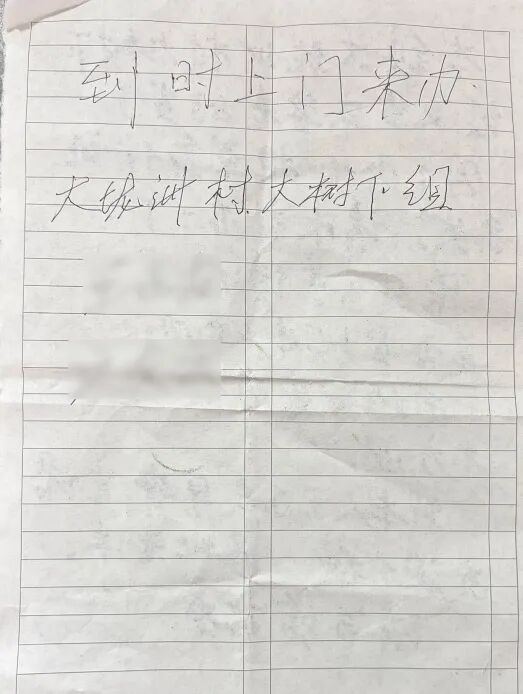 到时上门来办
大垅洲村大树下组